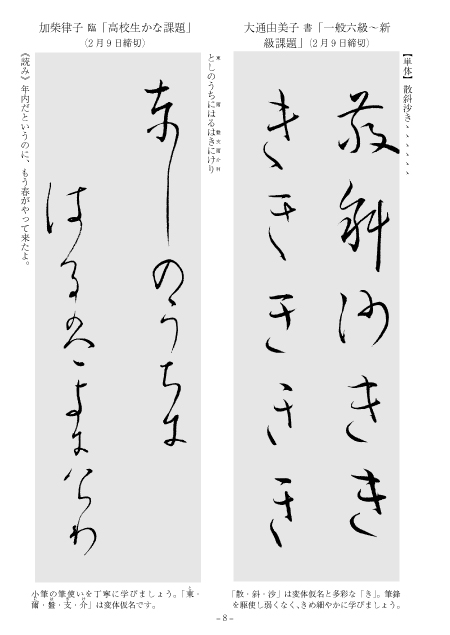 大通由美子 書「一般六級～新
級課題」(2月9日締切)
【単体】散斜沙き、、、、、、
散斜沙きき
ききききき
「散・斜・沙」は変体仮名と多彩な「き」。筆鋒
を駆使し弱くなく、きめ細やかに学びましょう。
加柴律子 臨「高校生かな課題」
(2月9日締切)
としのうちにはるはきにけり
東しのうち爾
はる盤支爾介り
《読み》年内だというのに、もう春がやって来たよ。
小筆の筆使いを丁寧に学びましょう。「東・
爾・盤・支・介」は変体仮名です。
– 8 –